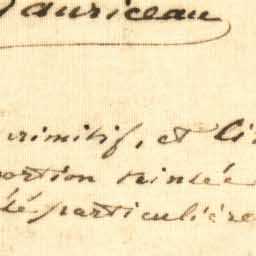 Mauriceau
primitif, et
portion teintée
particulière